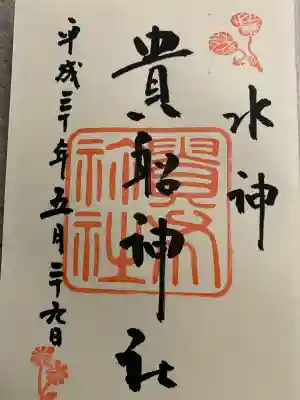 水神
貴船神社
貴布祢社
平成三十年五月二十九日